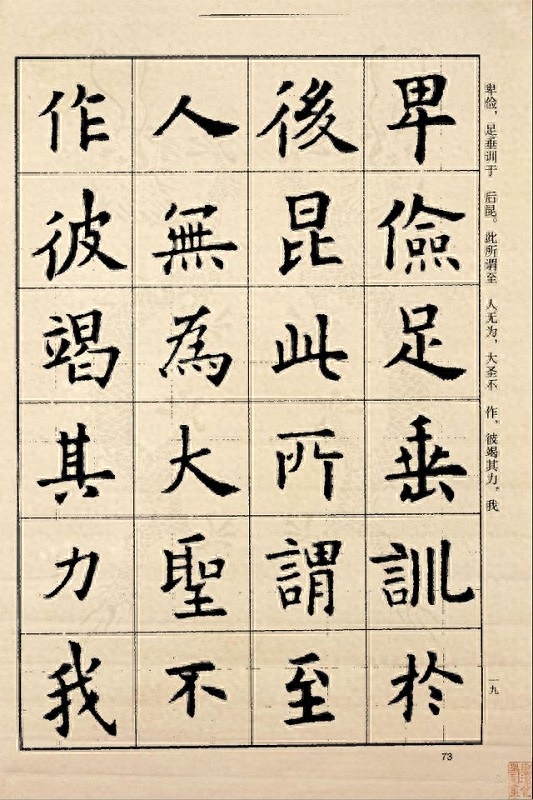 卑儉足垂訓於
後昆此所謂至
人無為大聖不
作彼竭其力我
卑俭，足垂训于 后昆。此所谓至 人无为，大圣不 作，彼竭其力，我
一九
73